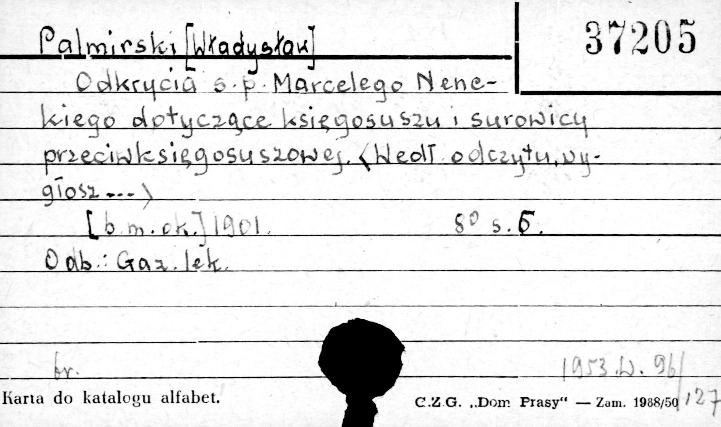 Palmirski [Władysław]
37205
Odkrycia ś.p. Marcelego Nenc-
kiego dotyczące księgosuszu i surowicy
przeciwksięgosuszowej. <Wedł. odczytu, wy-
głosz...>
[b.m.ok.] 1901. 8° s. 5.
Odb.: Gaz. lek.
br.
1953.W.96/127
Karta do katalogu alfabet.
C.Z.G. „Dom Prasy“ — Zam. 1988/50